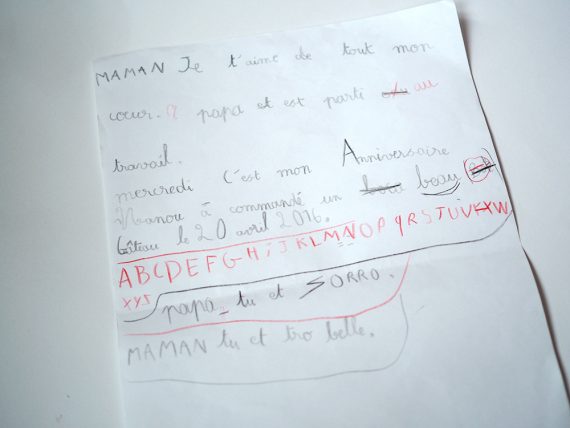 MAMAN Je t'aime de tout mon
cœur. papa et est parti au
travail.
mercredi C'est mon Anniversaire
Nanou à commandé un beau
Gâteau le 20 avril 2016.
ABCDEFGHiJKLMNOPqRSTUVXW
XYZ
papa tu et ZORRO.
MAMAN tu et tro belle.